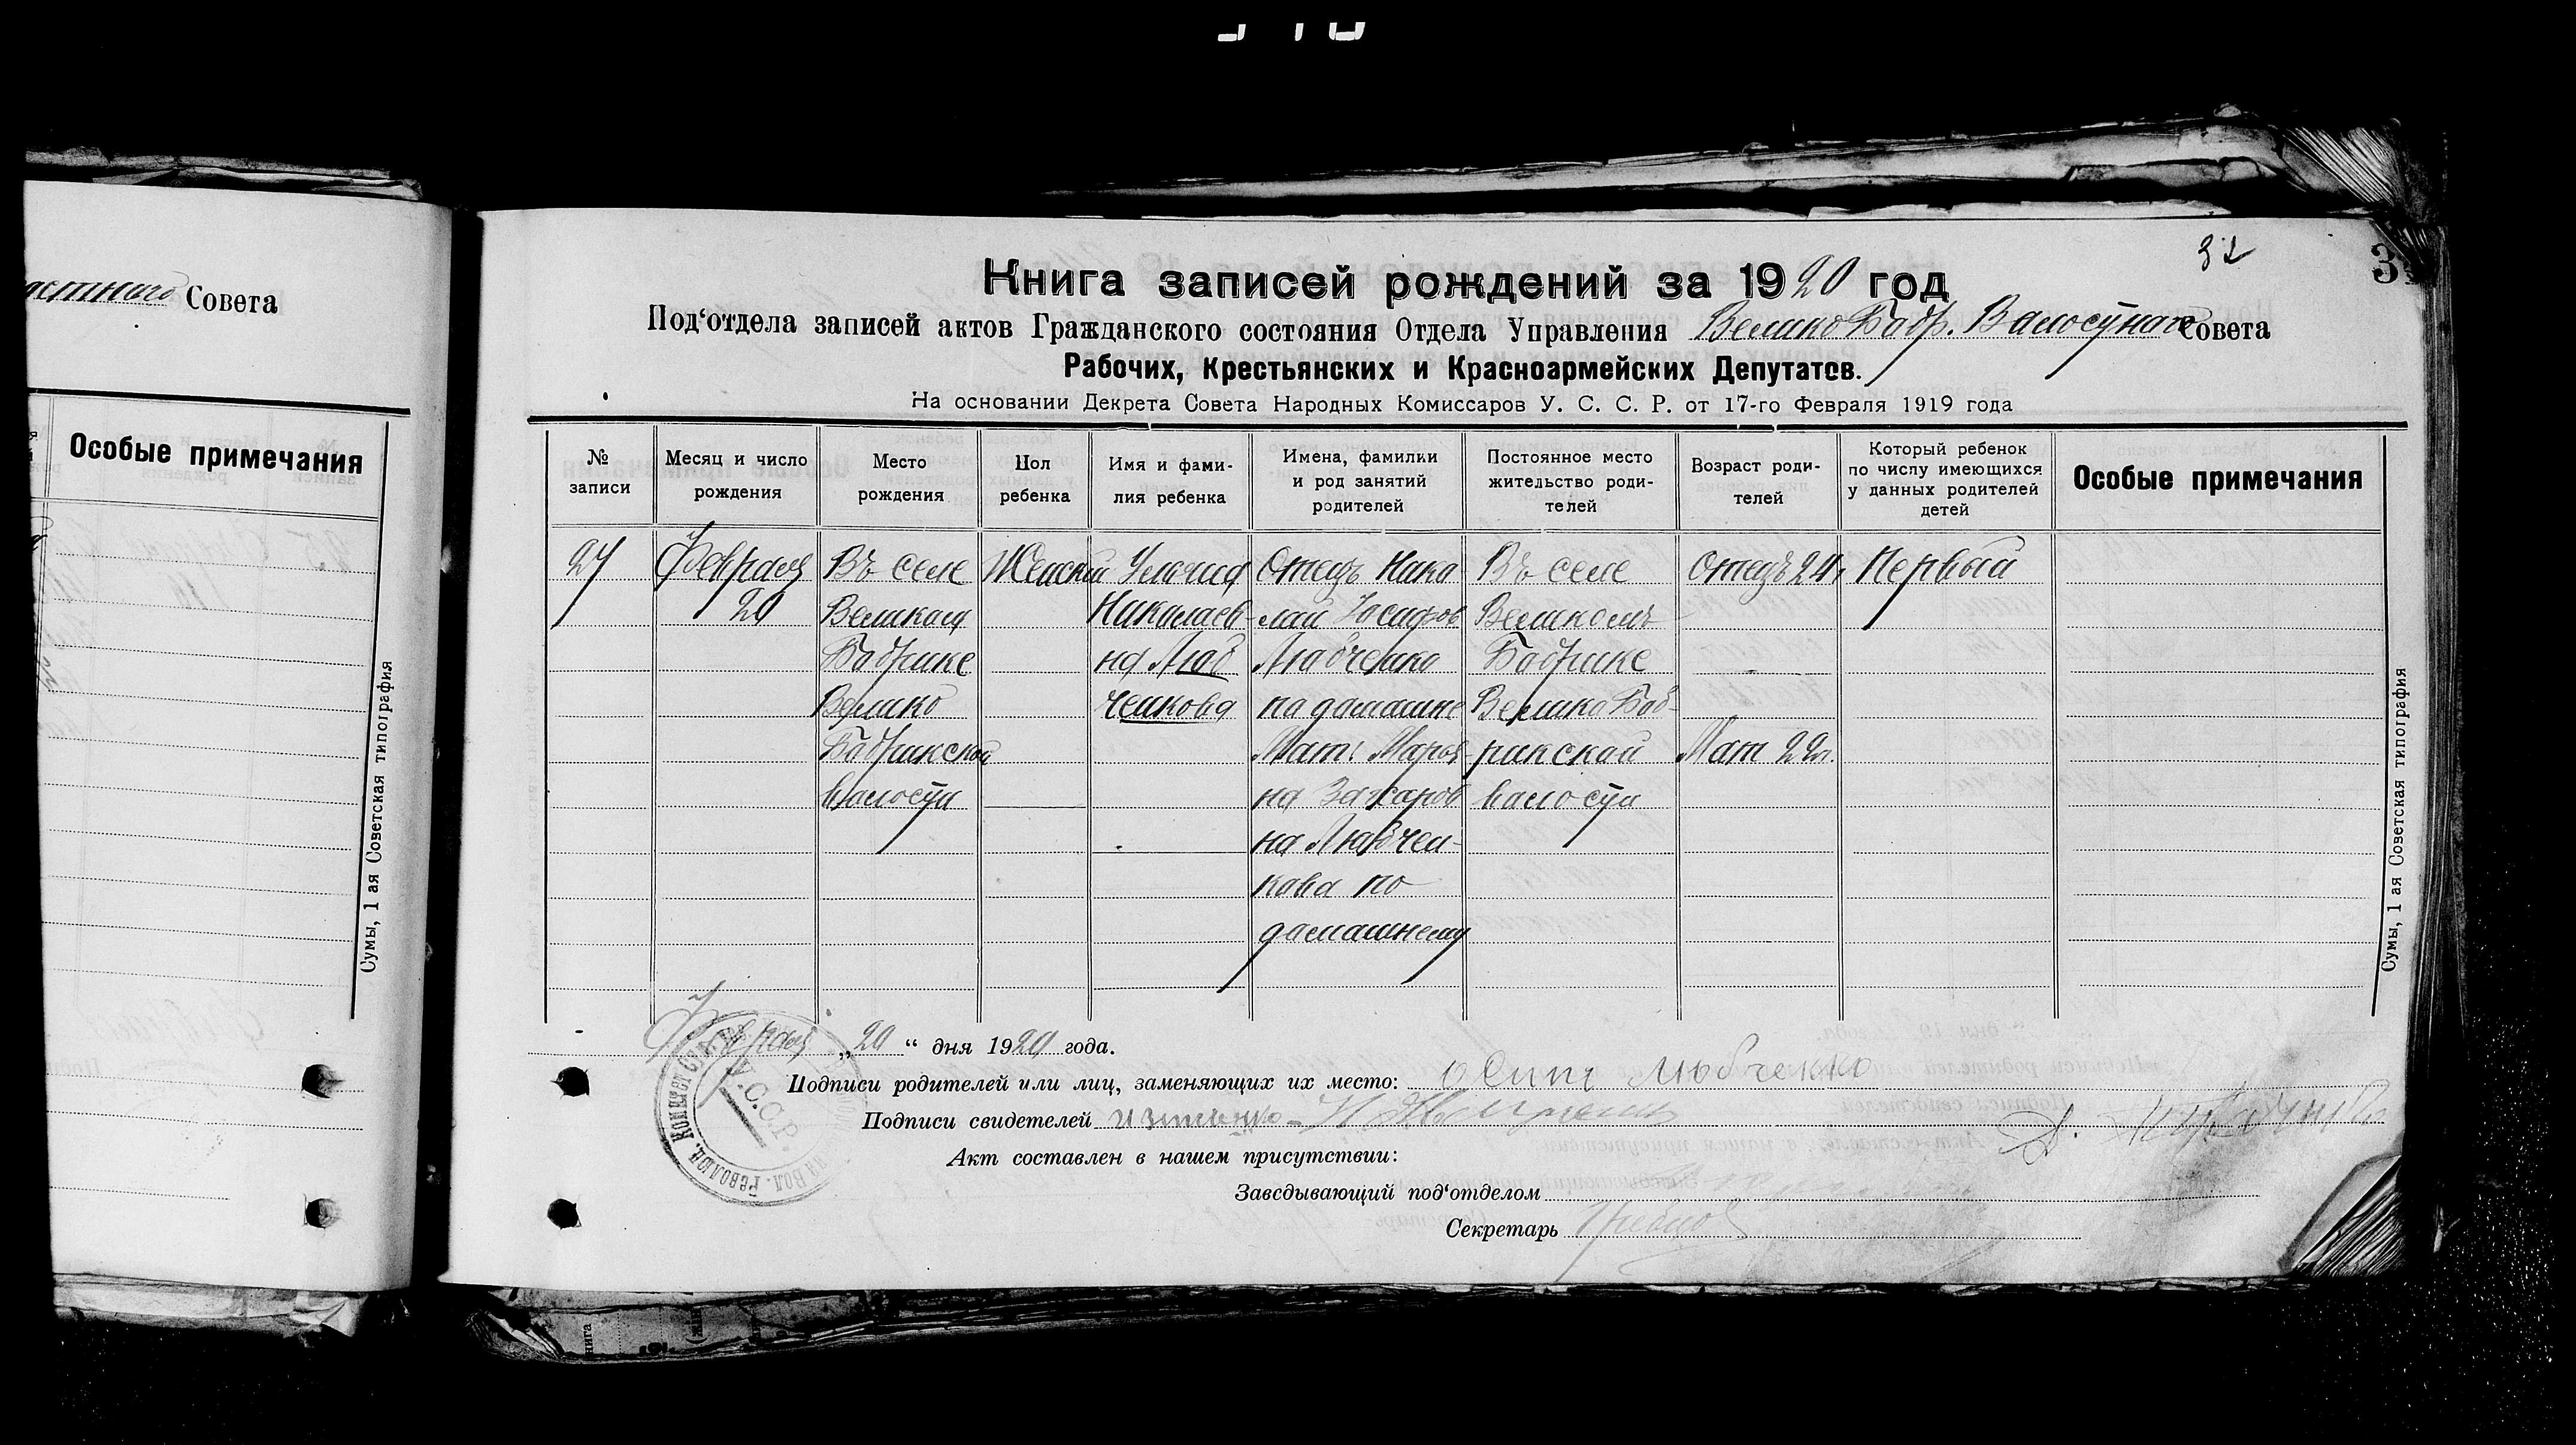 32
Книга записей рождений за 1920 год
Под‘отдела записей актов Гражданского состояния Отдела Управления Велико Бобр. Валостного Совета
Рабочих, Крестьянских и Красноармейских Депутатов.
На основании Декрета Совета Народных Комиссаров У. С. С. Р. от 17-го Февраля 1919 года
Совета
Особые примечания
Сумы, 1 ая Советская типография
№ записи
Месяц и число рождения
Место рождения
Пол ребенка
Имя и фами-лия ребенка
Имена, фамилии и род занятий родителей
Постоянное место жительство роди-телей
Возраст роди-телей
Который ребенок по числу имеющихся у данных родителей детей
Особые примечания
27
Февраля
20
Въ селе
Великом
Бобрике
Велико
Бобрикской
валости
Женский
Николаев-
на Люб
ченкова
Отецъ Нико
лай Иосифов
Любченко
по домашне
Мать Марья
на Захаров
на Любчен-
кова по
домашнему
Въ селе
Великомъ
Бобрике
Велико Боб-
рикской
валости
Отецъ 24 г
Мат 22 г.
Первый
Сумы, 1 ая Советская типография
Февраля „20“ дня 1920 года.
Подписи родителей или лиц, заменяющих их место: Осипъ Любченко
Подписи свидетелей
Акт составлен в нашем присутствии:
Заведывающий под‘отделом
Секретарь
У.С.С.Р.